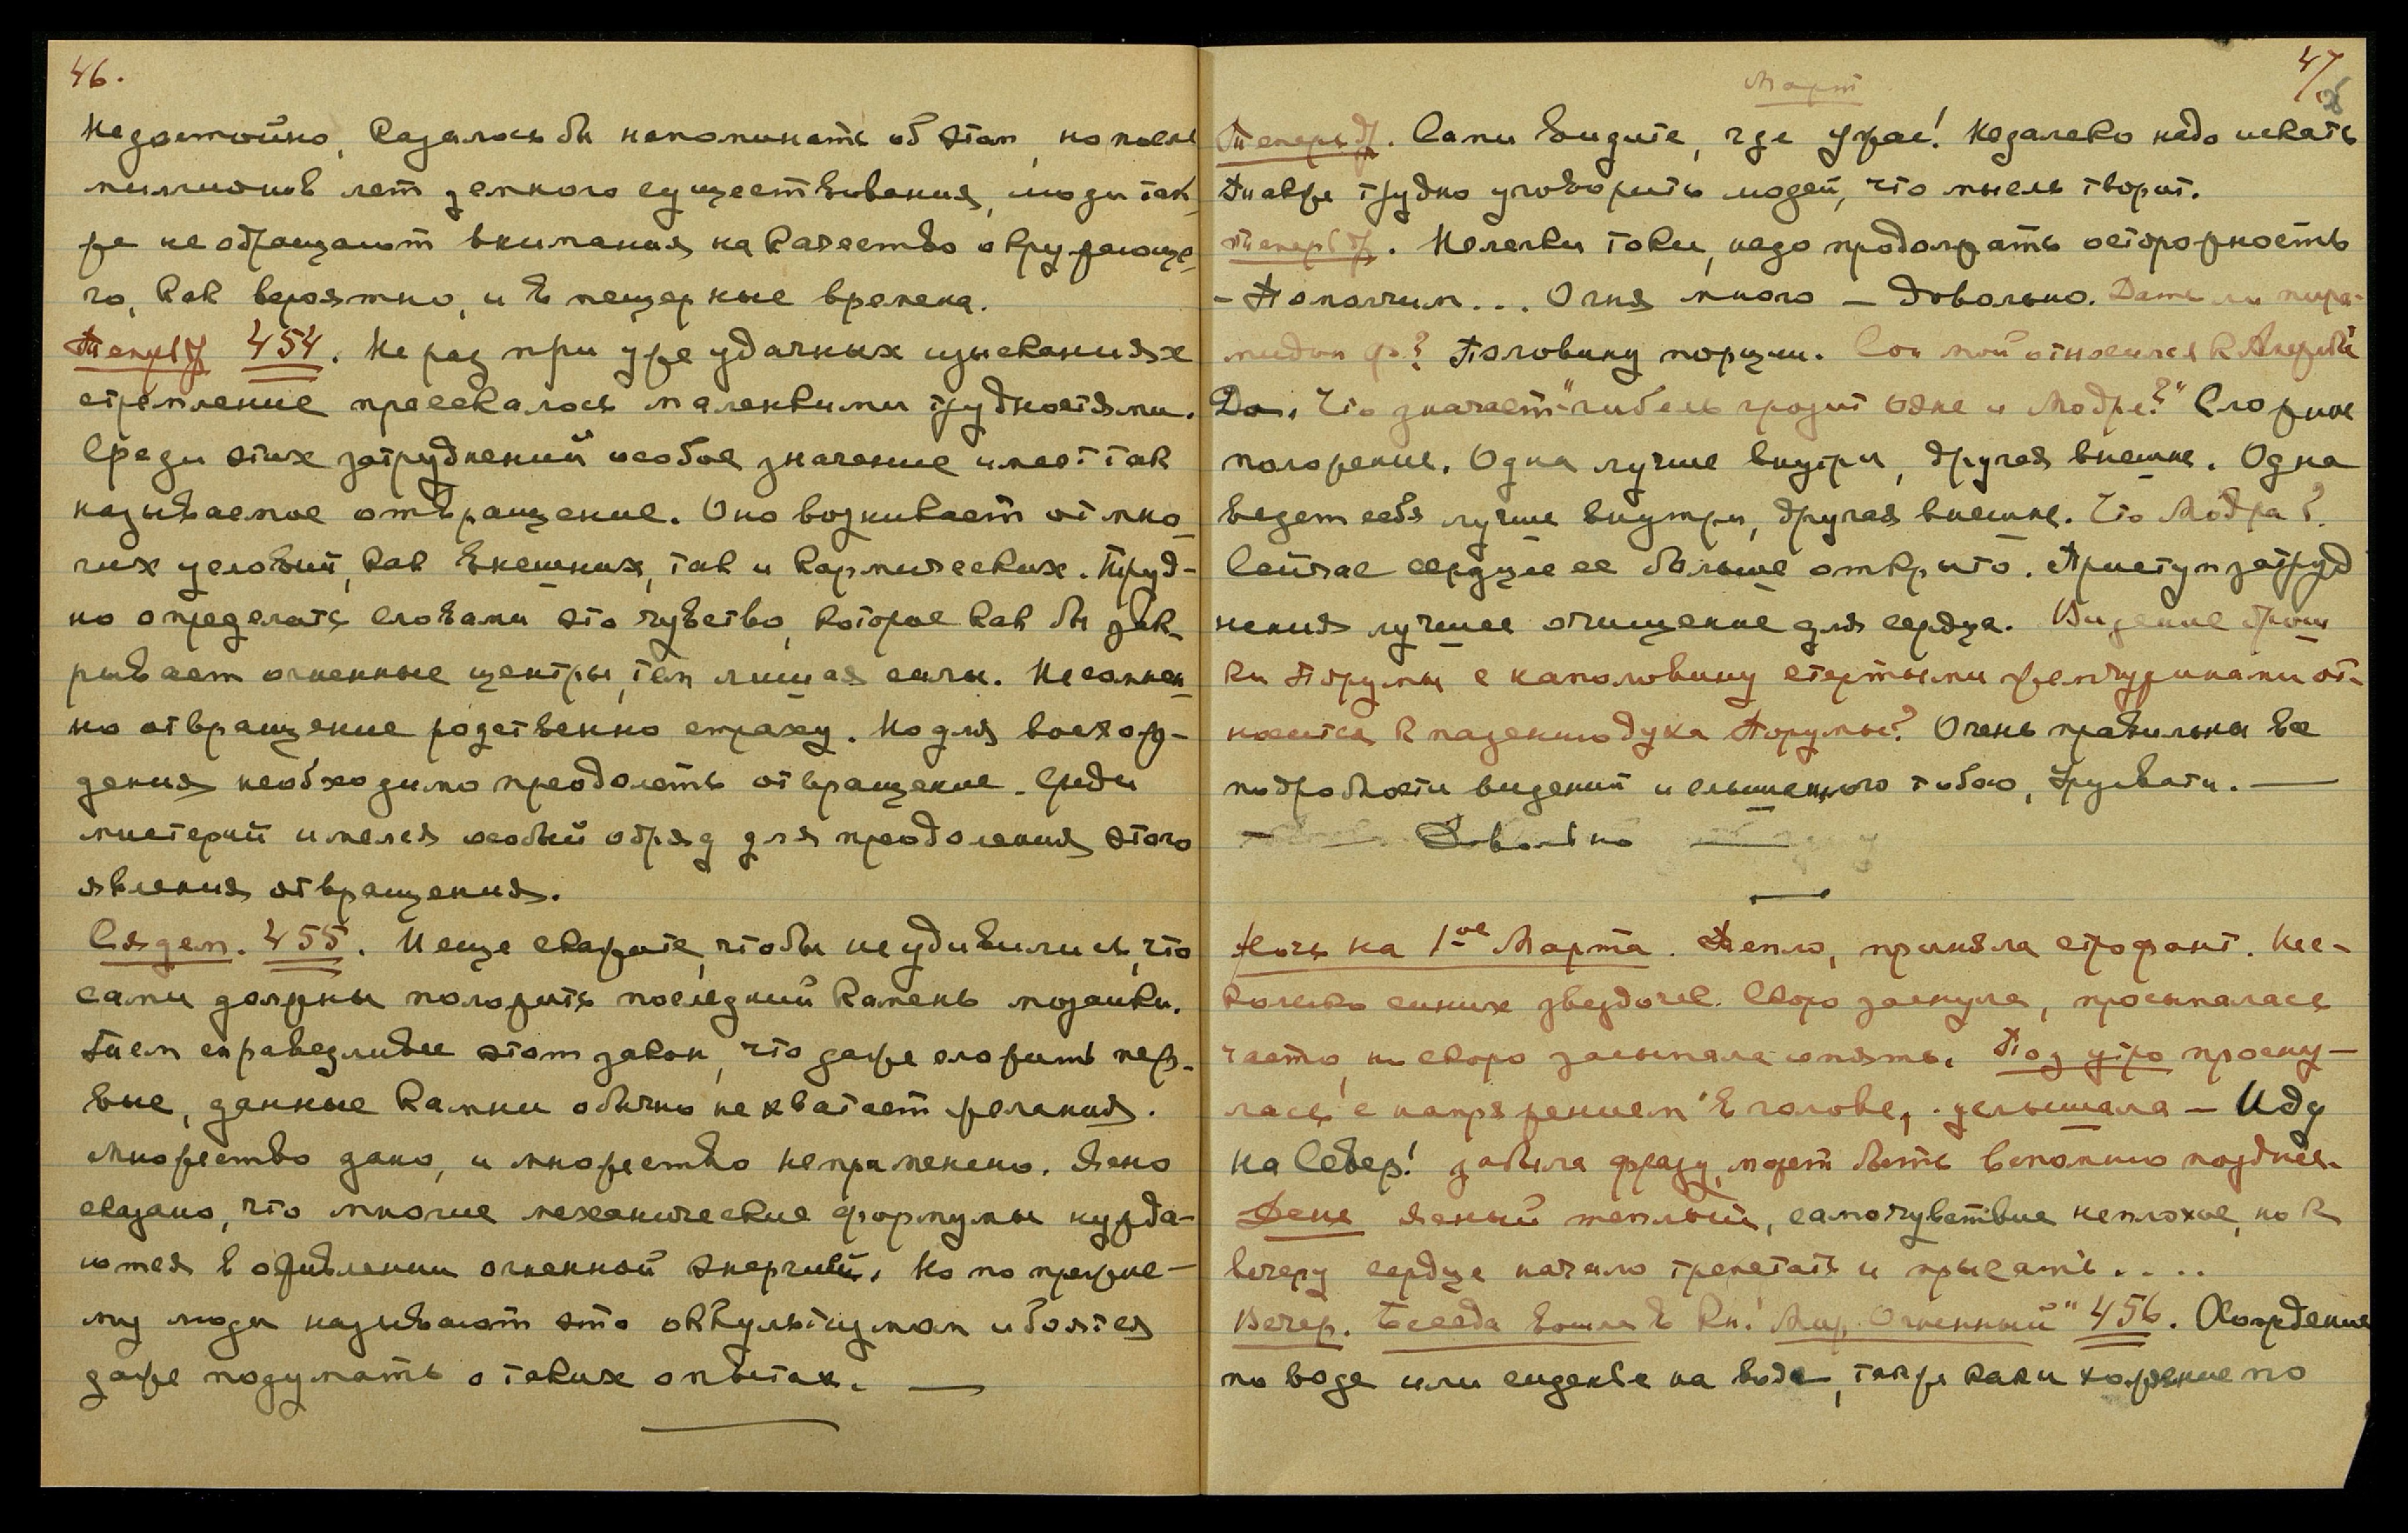 46.
Недостойно, казалось бы напоминать об этом, но после
миллионов лет земного существования, люди так
же не обращают внимания на качество окружающе-
го, как вероятно, и в пещерные времена.
454. Не раз при уже удачных изысканиях
стремление пресекалось маленькими трудностями.
Среди этих затруднений особое значение имеет так
называемое отвращение. Оно возникает от мно-
гих условий, как внешних, так и кармических. Труд-
но определить словами это чувство, которое как бы зак-
рывает огненные центры, тем лишая силы. Несомнен-
но отвращение родственно страху. Но для восхож-
дения необходимо преодолеть отвращение. Среди
мистерий имелся особый обряд для преодоления этого
явления отвращения.
Сядем. 455. И еще скажите, чтобы не удивились, что
сами должны положить последний камень мозаики.
Тем справедливее этот закон, что даже сложить пер-
вые, данные камни обычно не хватает желания.
Множество дано, и множество неприменено. Ясно
сказано, что многие механические формулы нужда-
ются в оживлении огненной энергией. Но по прежне-
му люди называют это оккультизмом и боятся
даже подумать о таких опытах. —
Март
47
Теперь др. Сами видите, где ужас! Недалеко надо искать
Также трудно уговорить людей, что мысль творит.
Теперь др. Нелегки токи, надо продолжать осторожность
– Помолчим... Огня много – довольно. Дать ли пира-
мидон ф.? Половину порции. Сон мой относился к Америке
Да. Что значает "гибель грозит Ояне и Модре?" Сложное
положение. Одна лучше внутри, другая внешне. Одна
ведет себя лучше внутри, другая внешне. Что Модра?
Сейчас сердце ее больше открыто. Приступ затруд
нения лучшее очищение для сердца. Видение брош
ки Порумы с наполовину стертыми жемчужинами от-
носится к падению духа Порумы? Очень правильны все
подробности видений и слышенного тобою, Урусвати. —
— Довольно —
Ночь на 1-ое Марта. Тепло, приняла строфант. Нес-
колько синих звездочек. Скоро заснула, просыпалась
часто, но скоро засыпала опять. Под утро просну-
лась с напряжением в голове, услышала – Иду
на Север! забыла фразу, может быть вспомню позднее.
День ясный теплый, самочувствие неплохое, но к
вечеру сердце начало трепетать и прыгать....
Вечер. Беседа вошла в кн. "Мир Огненный" 456. Хождение
по воде или сиденье на воде, также как и хождение по